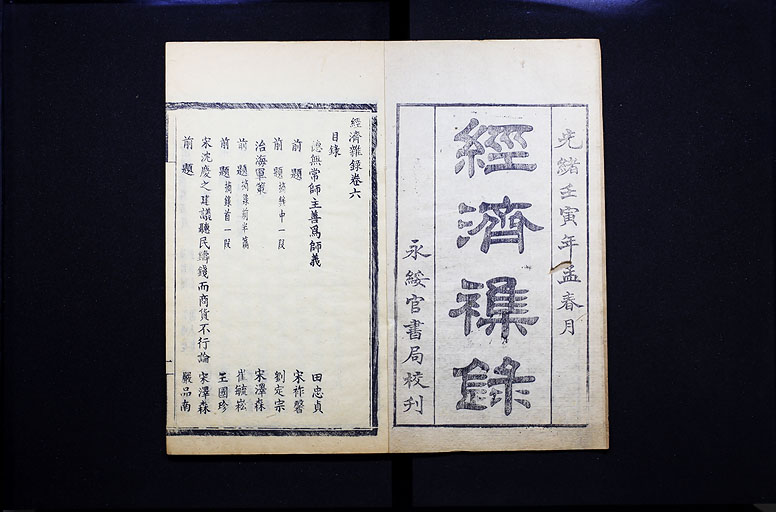 光緒壬寅年孟春月
經濟襍錄
永綏官書局校刊
經濟雜錄卷六
目錄
德無常師主善爲師義 田忠貞
前題 宋祚馨
前題 摘錄中一段 劉定宗
治海軍策 宋澤森
前題 摘錄前半篇 崔毓崧
前題 摘錄首一段 王國珍
宋沈慶之建議聽民鑄錢而商貨不行論 宋澤森
前題 嚴品南